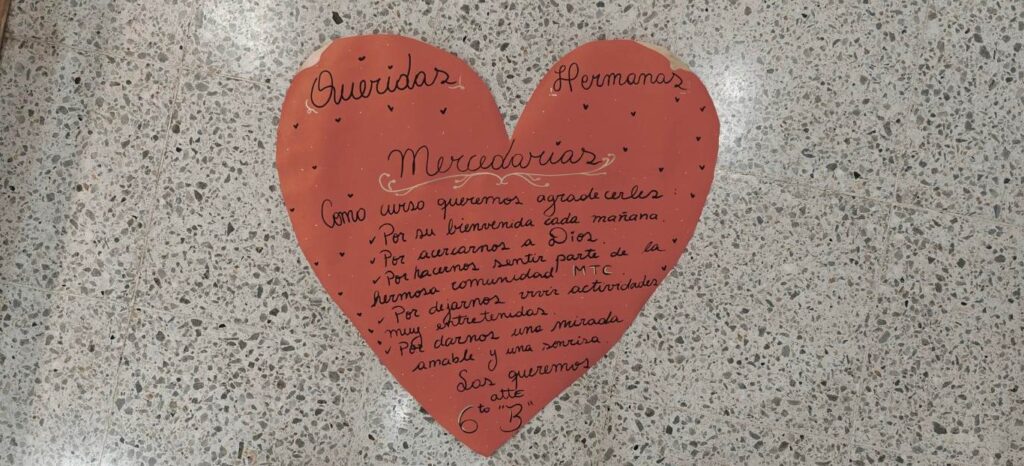 Queridas Hermanas
Mercedarias
Como curso queremos agradecerles:
✓ Por su bienvenida cada mañana.
✓ Por acercarnos a Dios.
✓ Por hacernos sentir parte de la
hermosa comunidad MTC.
✓ Por dejarnos vivir actividades
muy entretenidas.
✓ Por darnos una mirada
amable y una sonrisa
Las queremos
atte
6to "B"